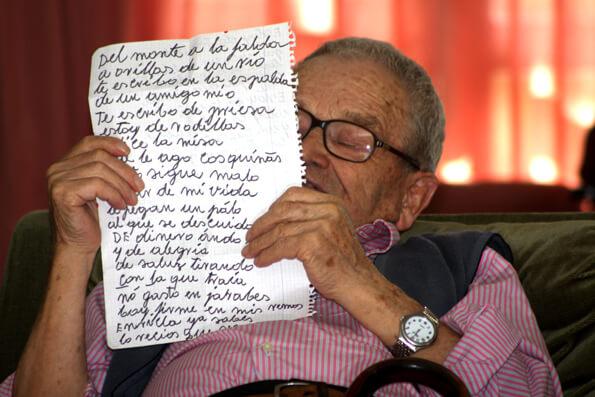 Del monte a la falda
a orillas de un río
te escribo en la espalda
de un amigo mío
Te escribo de priesa
estoy de rodillas
ice la misa
le ago cosquiñas
sigue malo
de mi vida
pegan un palo
al que se descuida
DE dinero ando
y de alegria
de salud tirando
con la que traia
no gasto en jarabes
boy firme en mis remos
EN villa ya sabes
lo recios que